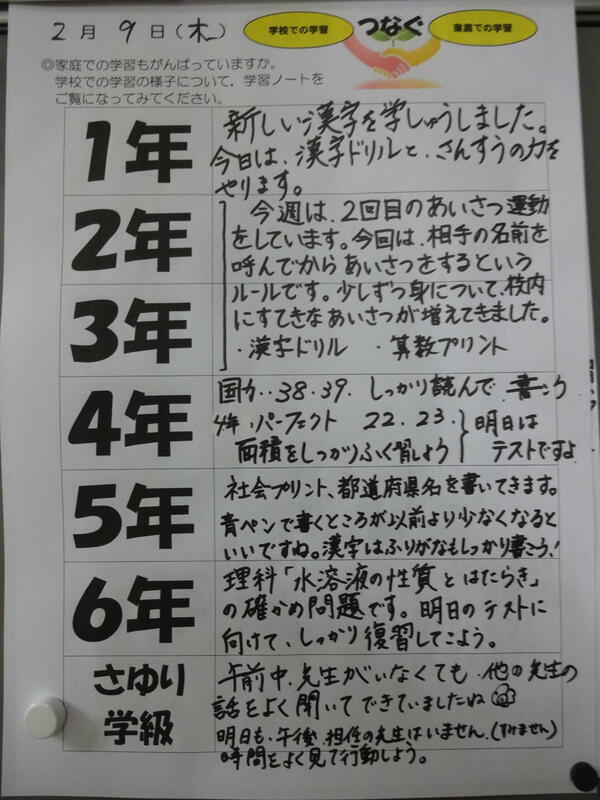 2月9日(木)
学校での学習 つなぐ 家庭での学習
◎家庭での学習もがんばっていますか。
学校での学習の様子について,学習ノートを
ご覧になってみてください。
1年
新しい漢字を学しゅうしました。
今日は、漢字ドリルと、さんすうの力を
やります。
2年
3年
今週は、2回目のあいさつ運動
をしています。今回は、相手の名前を
呼んでからあいさつをするという
ルールです。少しずつ身について、校内
にすてきなあいさつが増えてきました。
・漢字ドリル ・算数プリント
4年
国力・・38・39. しっかり読んで 書こう
4年・パーフェクト 22.23.
面積をしっかりふく習しよう
明日は
テストですよ
5年
社会プリント、都道府県名を書いてきます。
青ペンで書くところが以前より少なくなると
いいですね。漢字はふりがなもしっかり書こう!
6年
理科「水溶液の性質とはたらき」
の確かめ問題です。明日のテストに
向けて、しっかり復習してこよう。
さゆり
学級
午前中、先生がいなくても、他の先生の
話をよく聞いてできていましたね
明日も、午後、担任の先生はいません。(すみません)
時間をよく見て行動しよう。